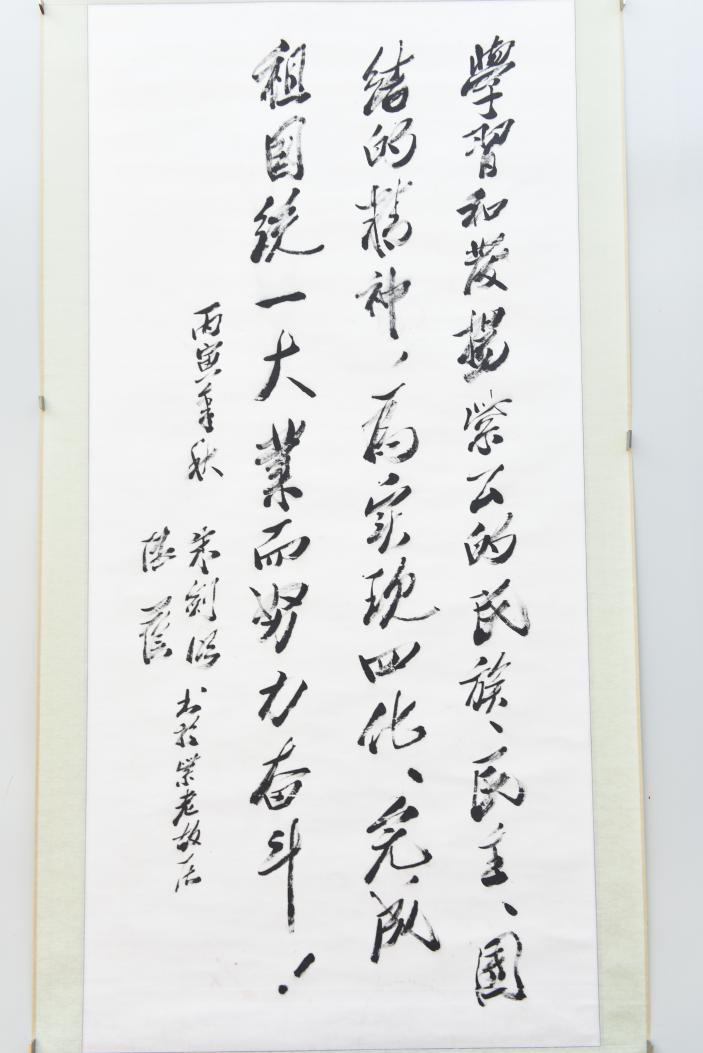 學習和發揚紫公的民族、民主、團
結的精神，為实現四化、完成
祖国統一大業而努力奋斗！
丙寅年秋
朱剑
張
书於紫老故居